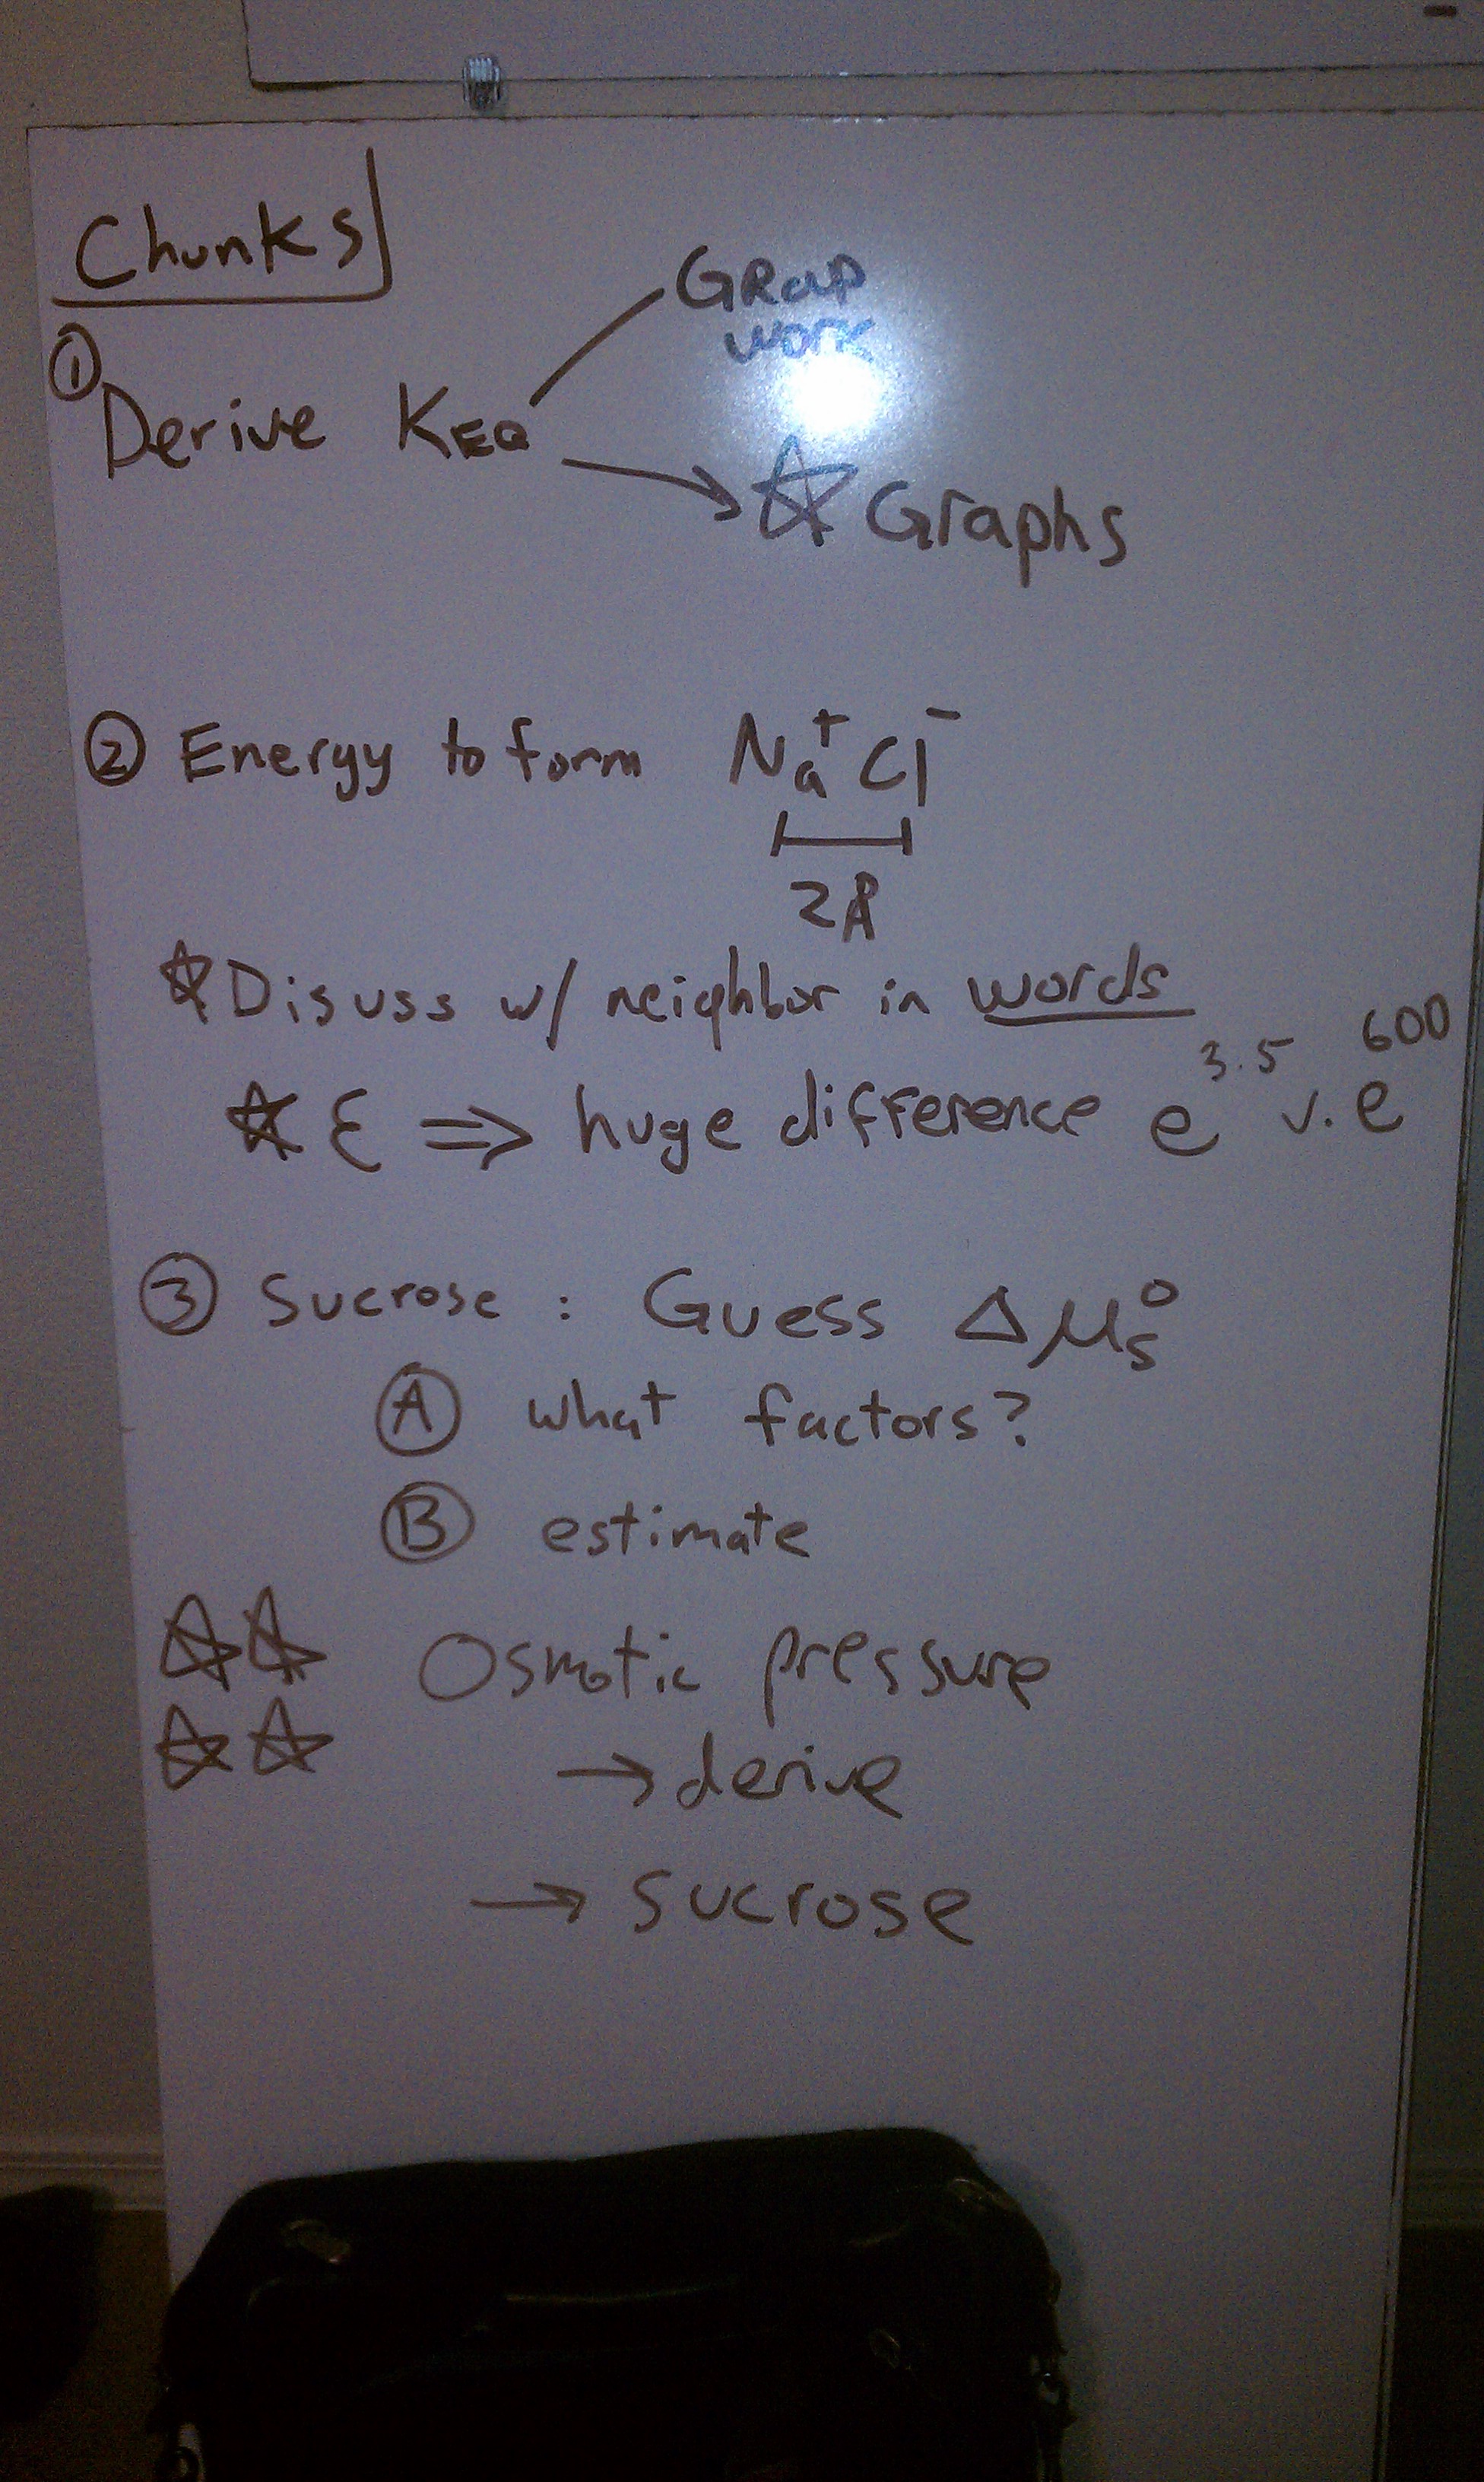 Chunks
GROUP
work
① Derive KEQ
☆ Graphs
② Energy to form Na⁺Cl⁻
2Å
☆ Disuss w/ neighbor in words
☆ ε ⇒ huge difference e^3.5 v. e^600
③ Sucrose : Guess Δμ°s
Ⓐ what factors?
Ⓑ estimate
☆☆ Osmotic pressure
☆☆ → derive
→ sucrose